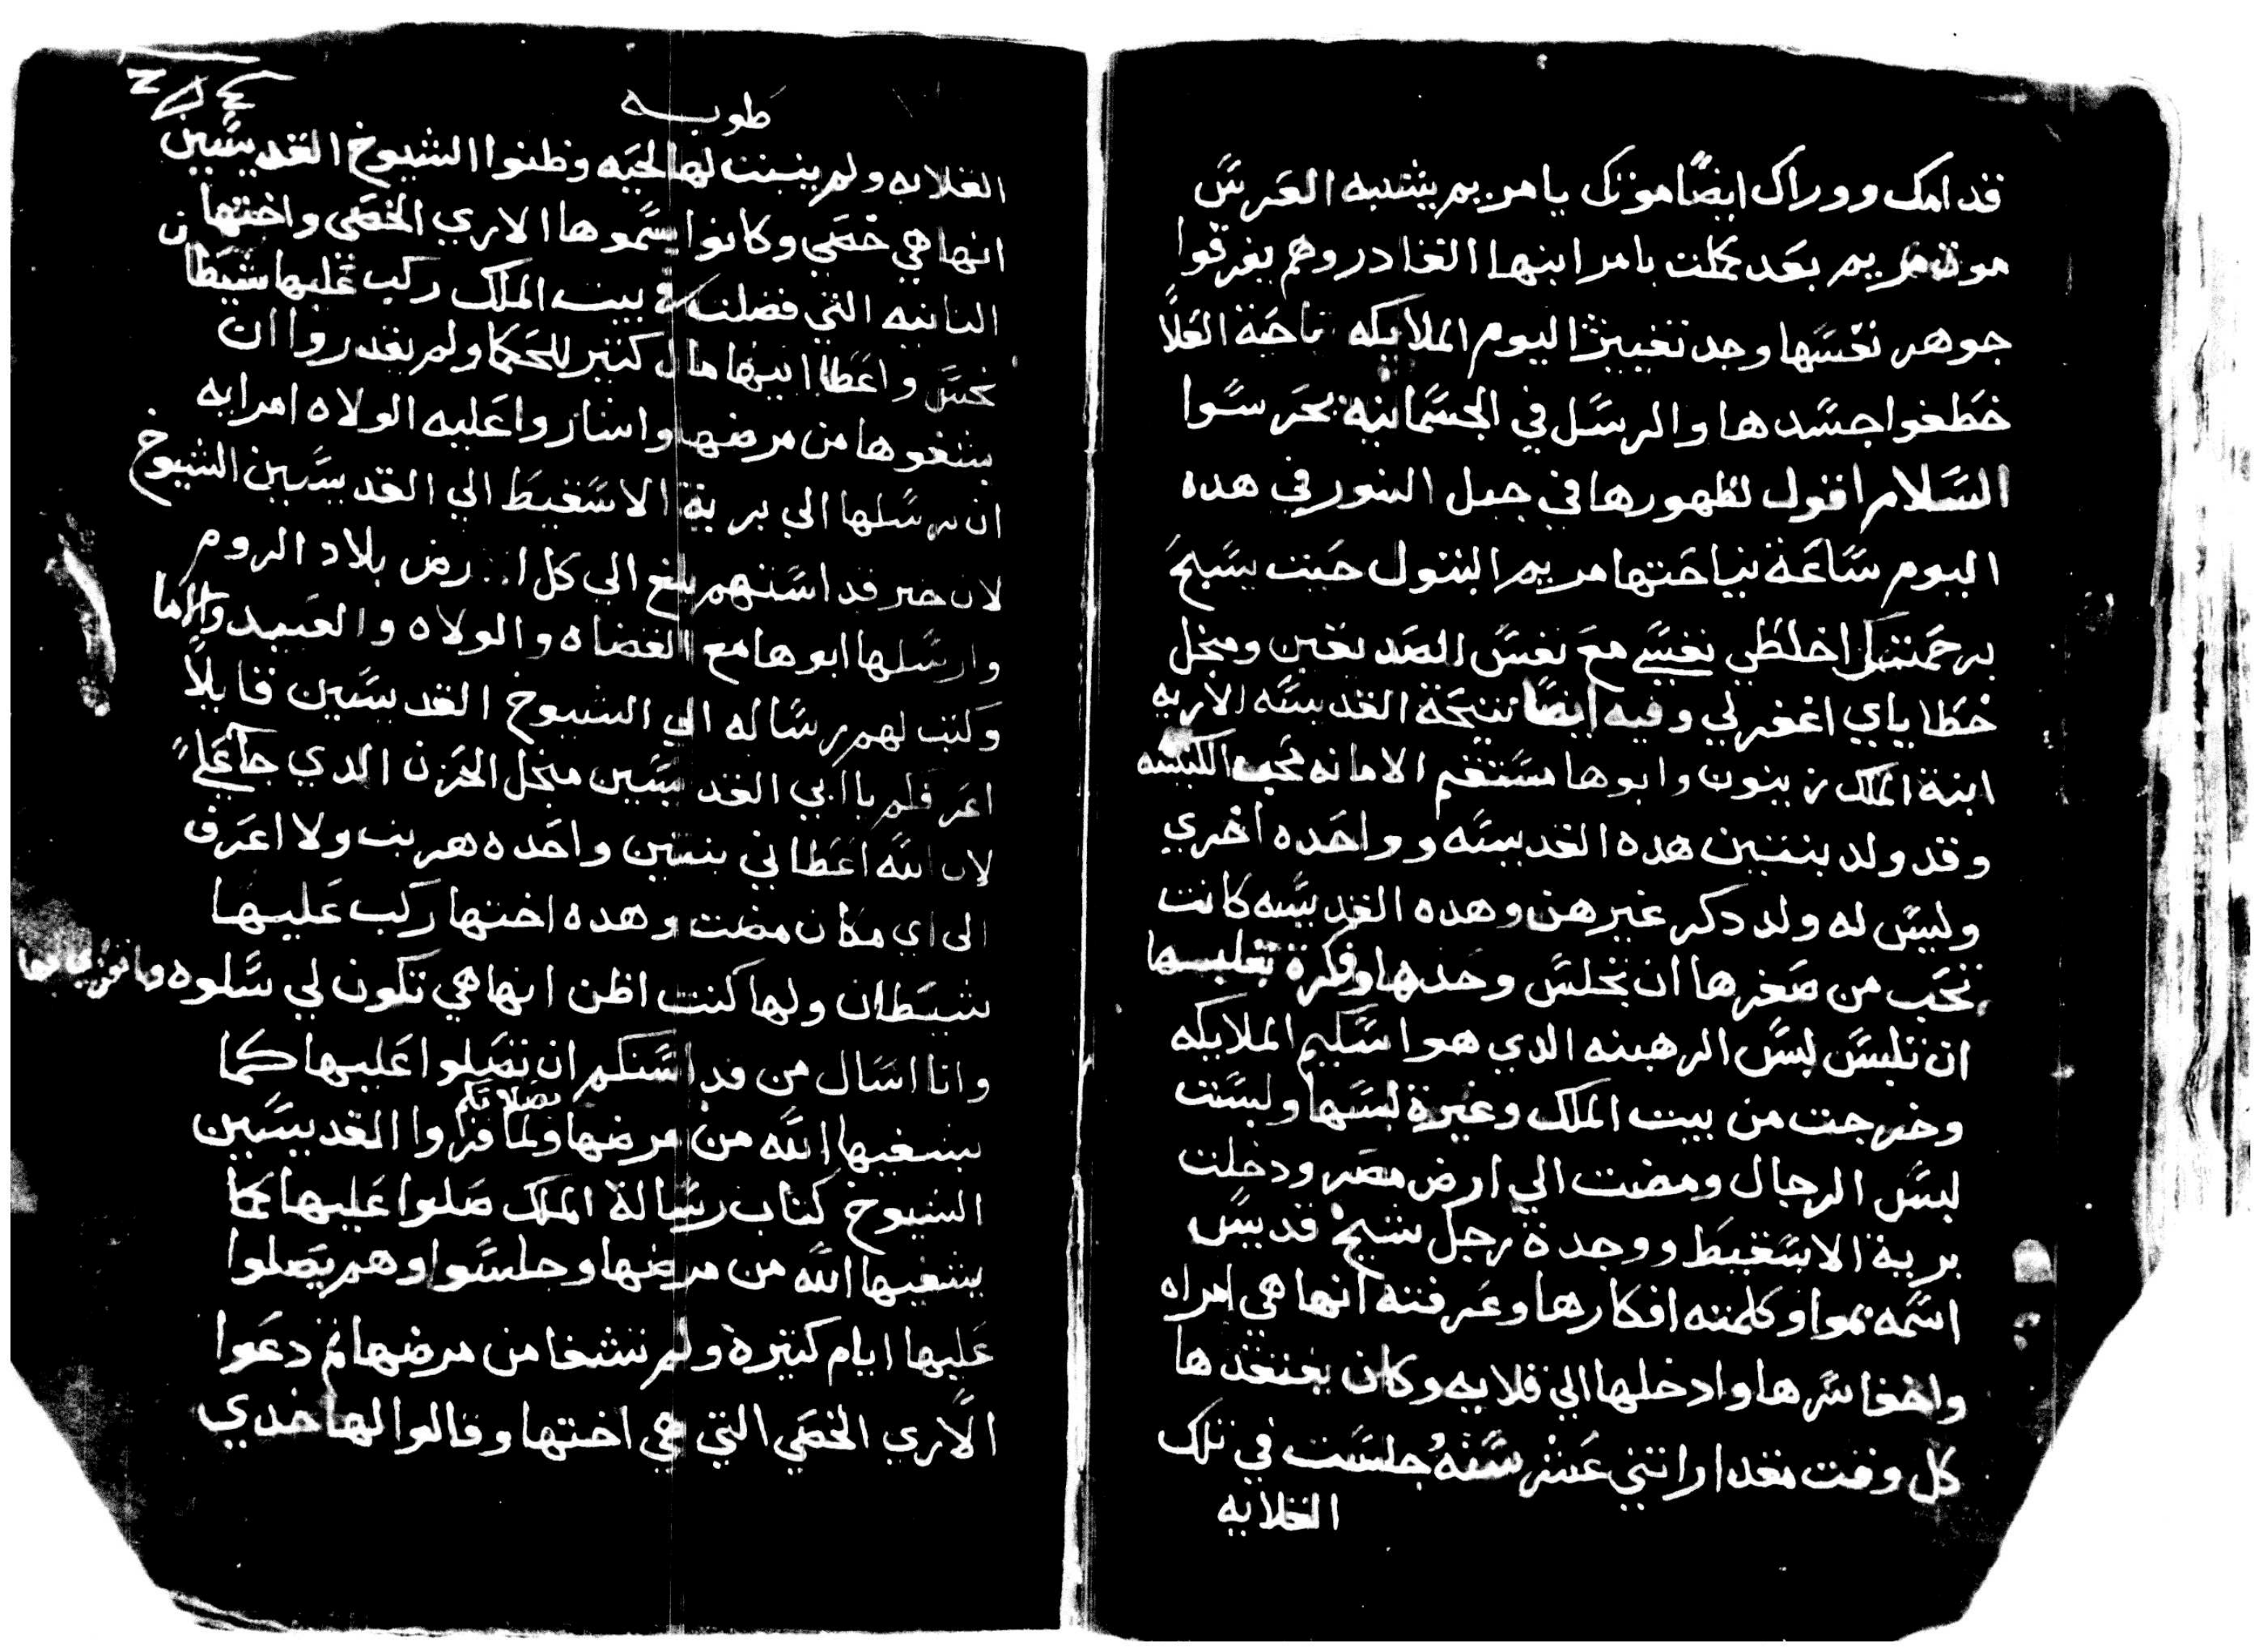 قدامك ووراك ايضًا موتك يا مريم يشبه العرس
موت مريم بعد كملت بامر ابنها القادر وهم يفرقوا
جوهر نفسها وجد تغييرًا اليوم الملايكه ناحية العلا
خطفوا جسدها والرسل في الجسمانيه يحرسوا
السلام اقول لظهورها في جبل النور في هده
اليوم ساعة نياحتها مريم البتول حيت يسبح
برحمتك اخلطي نفسي مع نفس الصديقين ومنجل
خطاياي اغفر لي وفيه ايضًا تنيحة القديسه الاريه
ابنة الملك زينون وابوها مستقيم الامانه محب الكنيسه
وقد ولد بنتين هده القديسه وواحده اخري
وليس له ولد دكر غيرهن وهده القديسه كانت
تحب من صغرها ان تجلس وحدها وفكرة تقليسها
ان تلبس لبس الرهبنه الدي هو اسكيم الملايكه
وخرجت من بيت الملك وغيرة لبسها ولبست
لبس الرجال ومضت الي ارض مصر ودخلت
برية الاسقيط ووجدة رجل شيخ قديس
اسمه بموا وكلمته افكارها وعرفته انها هي امراه
واخفا سرها وادخلها الي قلايه وكان يفتقدها
كل وقت مقدار اتني عشر سنه جلست في تلك
القلايه
طوبه
القلايه ولم ينبت لها لحيه وظنوا الشيوخ القديسين
انها هي خصي وكانوا يسموها الاري الخصي واختها
التانيه التي فضلت في بيت الملك ركب عليها شيطان
نجس واعطا ابيها مال كتير للحكما ولم يقدروا ان
يشفوها من مرضها واشاروا عليه الولاه امرايه
ان يرسلها الي برية الاسقيط الي القديسين الشيوخ
لان خبر قداستهم بلغ الي كل ارض بلاد الروم
وارسلها ابوها مع القضاه والولاه والعبيد والاما
وكتب لهم رساله الي الشيوخ القديسين قايلًا
اعرفكم يا ابي القديسين منجل الحزن الدي جا علي
لان الله اعطاني بنتين واحده هربت ولا اعرف
الي اي مكان مضت وهده اختها ركب عليها
شيطان ولها كنت اظن انها هي تكون لي سلوه
وانا اسال من قداستكم ان تصلوا عليها كما
يشفيها الله من مرضها بصلاتكم ولما قروا القديسين
الشيوخ كتاب رسالة الملك صلوا عليها كما
يشفيها الله من مرضها وجلسوا وهم يصلوا
عليها ايام كتيرة ولم تشفا من مرضها تم دعوا
الاري الخصي التي هي اختها وقالوا لها خدي